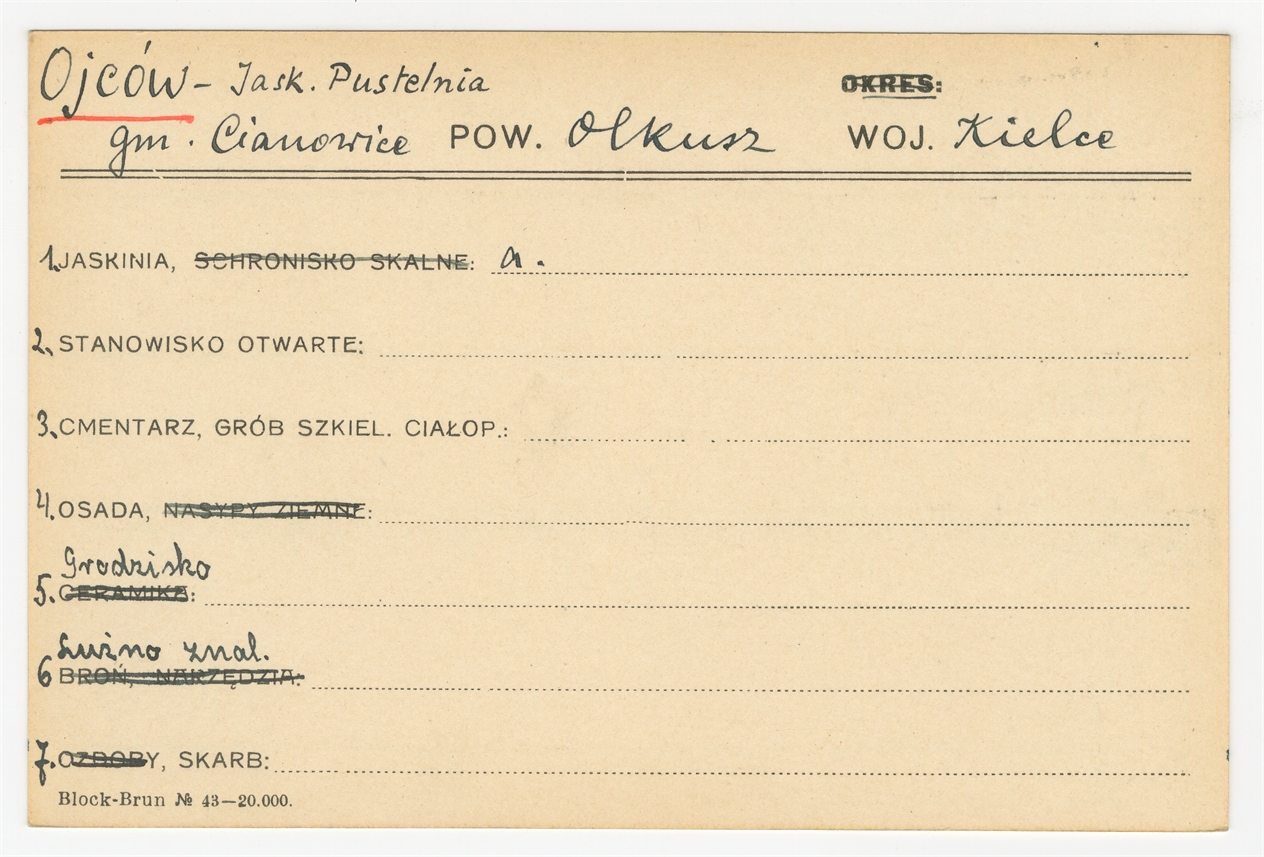 Ojców – Jask. Pustelnia OKRES:
gm. Cianowice POW. Olkusz WOJ. Kielce
1. JASKINIA, SCHRONISKO SKALNE: a.
2. STANOWISKO OTWARTE:
3. CMENTARZ, GRÓB SZKIEL. CIAŁOP.:
4. OSADA, NASYPY ZIEMNE:
Grodzisko
5. CERAMIKA:
Luźno znal.
6 BROŃ, NARZĘDZIA:
7. OZDOBY, SKARB:
Block-Brun № 43—20.000.